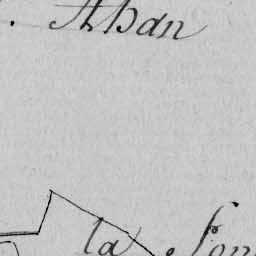 . Ahan
la Fon